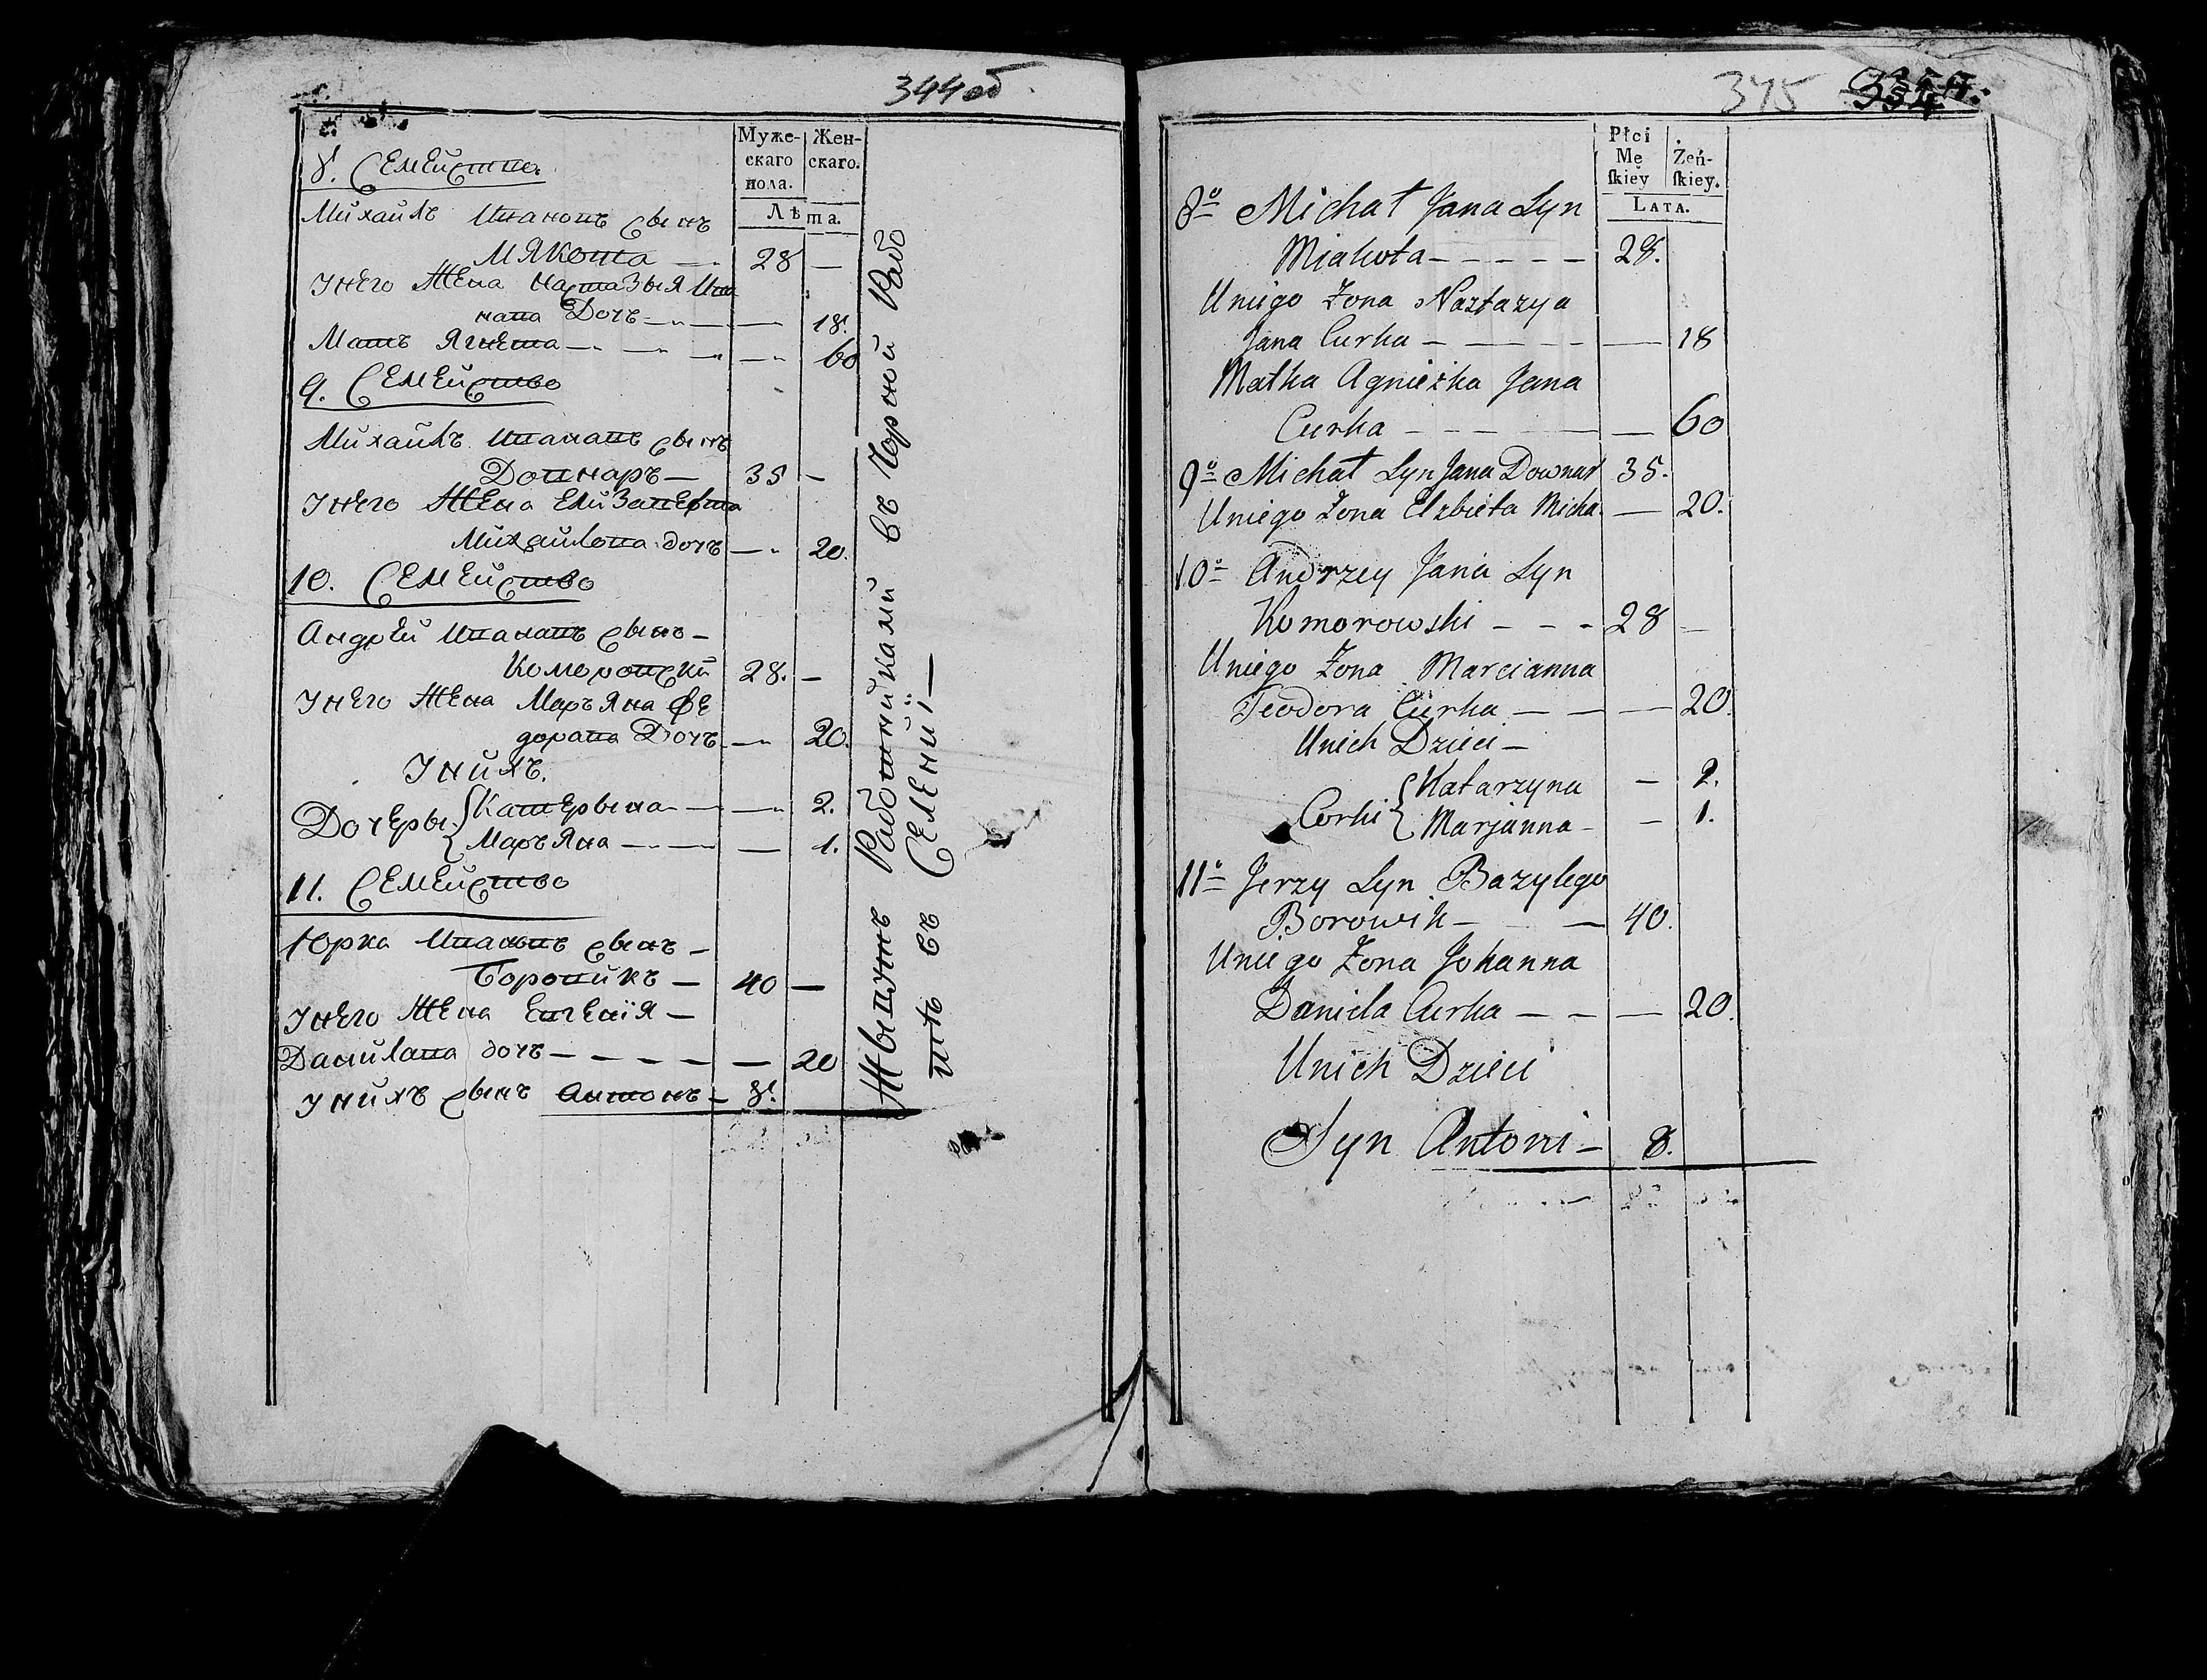 344 об
Муже-
скаго
пола.
Жен-
скаго.
Лѣта.
8. Семейство.
Михайлъ Ивановъ сынъ
Мякота — 28 —
Унего Жена Настазыя Ива
нова Дочъ — — 18.
Мать Ягнета — — 60
9. Семейство
Михайлъ Иванавъ сынъ
Довнаръ — 35 —
Унего Жена Елизавефта
Михайлова дочъ — 20.
10. Семейство
Андрей Иванавъ сынъ —
Коморовскй 28. —
Унего Жена Маръяна Фе
дорава Дочъ — 20.
Унихъ.
Дочеры { Катерына — — 2.
Маръяна — — 1.
11. Семейство
Юрка Иванавъ сынъ —
Боровикъ — 40 —
Унего Жена Евгенія —
Данилава дочъ — — 20
Унихъ сынъ Антонъ — 8.
Жывутъ Работниками въ Чорной Рабо
тѣ въ Селеніи —
345 334
Płci
Mę
skiey
Żeń-
skiey.
LATA.
8º Michał Jana Syn
Miakota — — 28.
Uniego Żona Nastazya
Jana Curka — — 18
Matka Agnieżka Jana
Curka — — 60
9º Michał Syn Jana Downar 35.
Uniego Żona Elzbieta Micha. — 20.
10º Andrzey Jana Syn
Komorowski — — 28 —
Uniego Żona Marcianna
Teodora Curka — — 20.
Unich Dzieci —
Corki { Katarzyna — 2.
Marjanna — — 1.
11º Jerzy Syn Bazylego
Borowik — — 40.
Uniego Żona Johanna
Daniela Curka — — 20.
Unich Dzieci
Syn Antoni — 8.